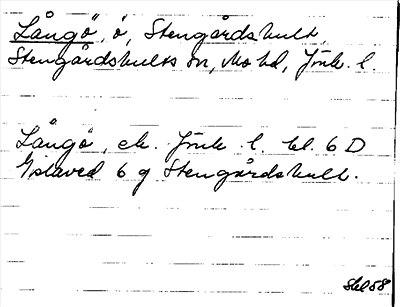 Långö, ö, Stengårdshult,
Stengårdshults sn, Mo hd, Jönk. l.
Långö, ek. Jönk. l. bl. 6 D
Gislaved 6 g Stengårdshult.
Skl 58